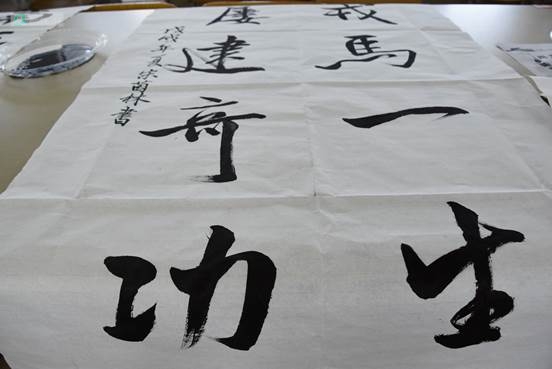 戎馬一生
屢建奇功
戊戌年夏林書